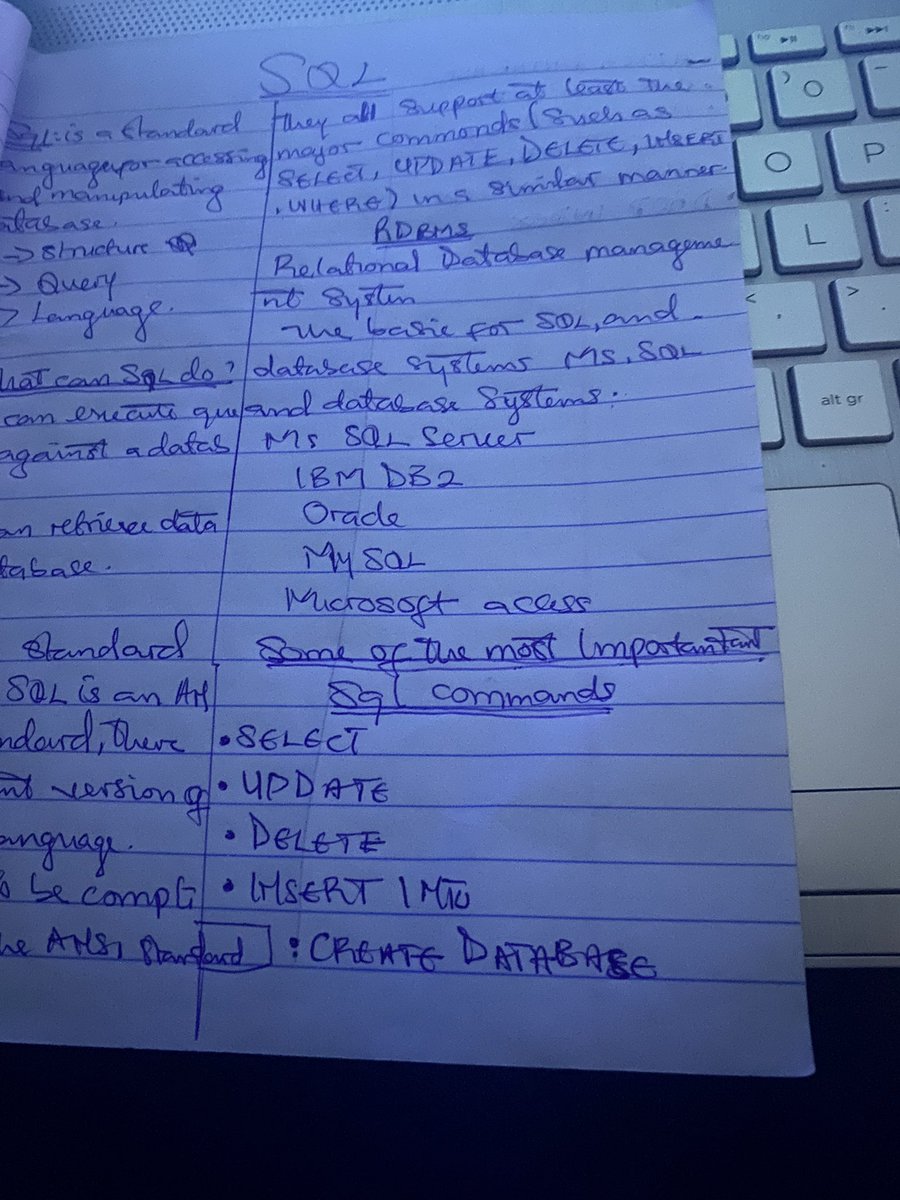 SQL
SQL: is a standard
anguage for accessing
nd manipulating
atabase.
→ Structure
→ Query
> Language.
hat can SQL do?
can execute que
against a datab
an retrieve data
tabase.
Standard
SQL is an AN
ndard, there
nt version of
anguage.
o be compli
he ANSI Standard
they all support at least the
major commands (such as
SELECT, UPDATE, DELETE, INSERT
, WHERE) in s similar manner
RDBMS
Relational Database manageme
nt System
the basic for SQL, and
database systems Ms. SQL
and database Systems:
Ms SQL Server
IBM DB2
Oracle
My SQL
Microsoft access
Some of the most Importantant
Sql commands
• SELECT
• UPDATE
• DELETE
• INSERT INTO
: CREATE DATABASE
O
O
P
L
<
>
alt gr